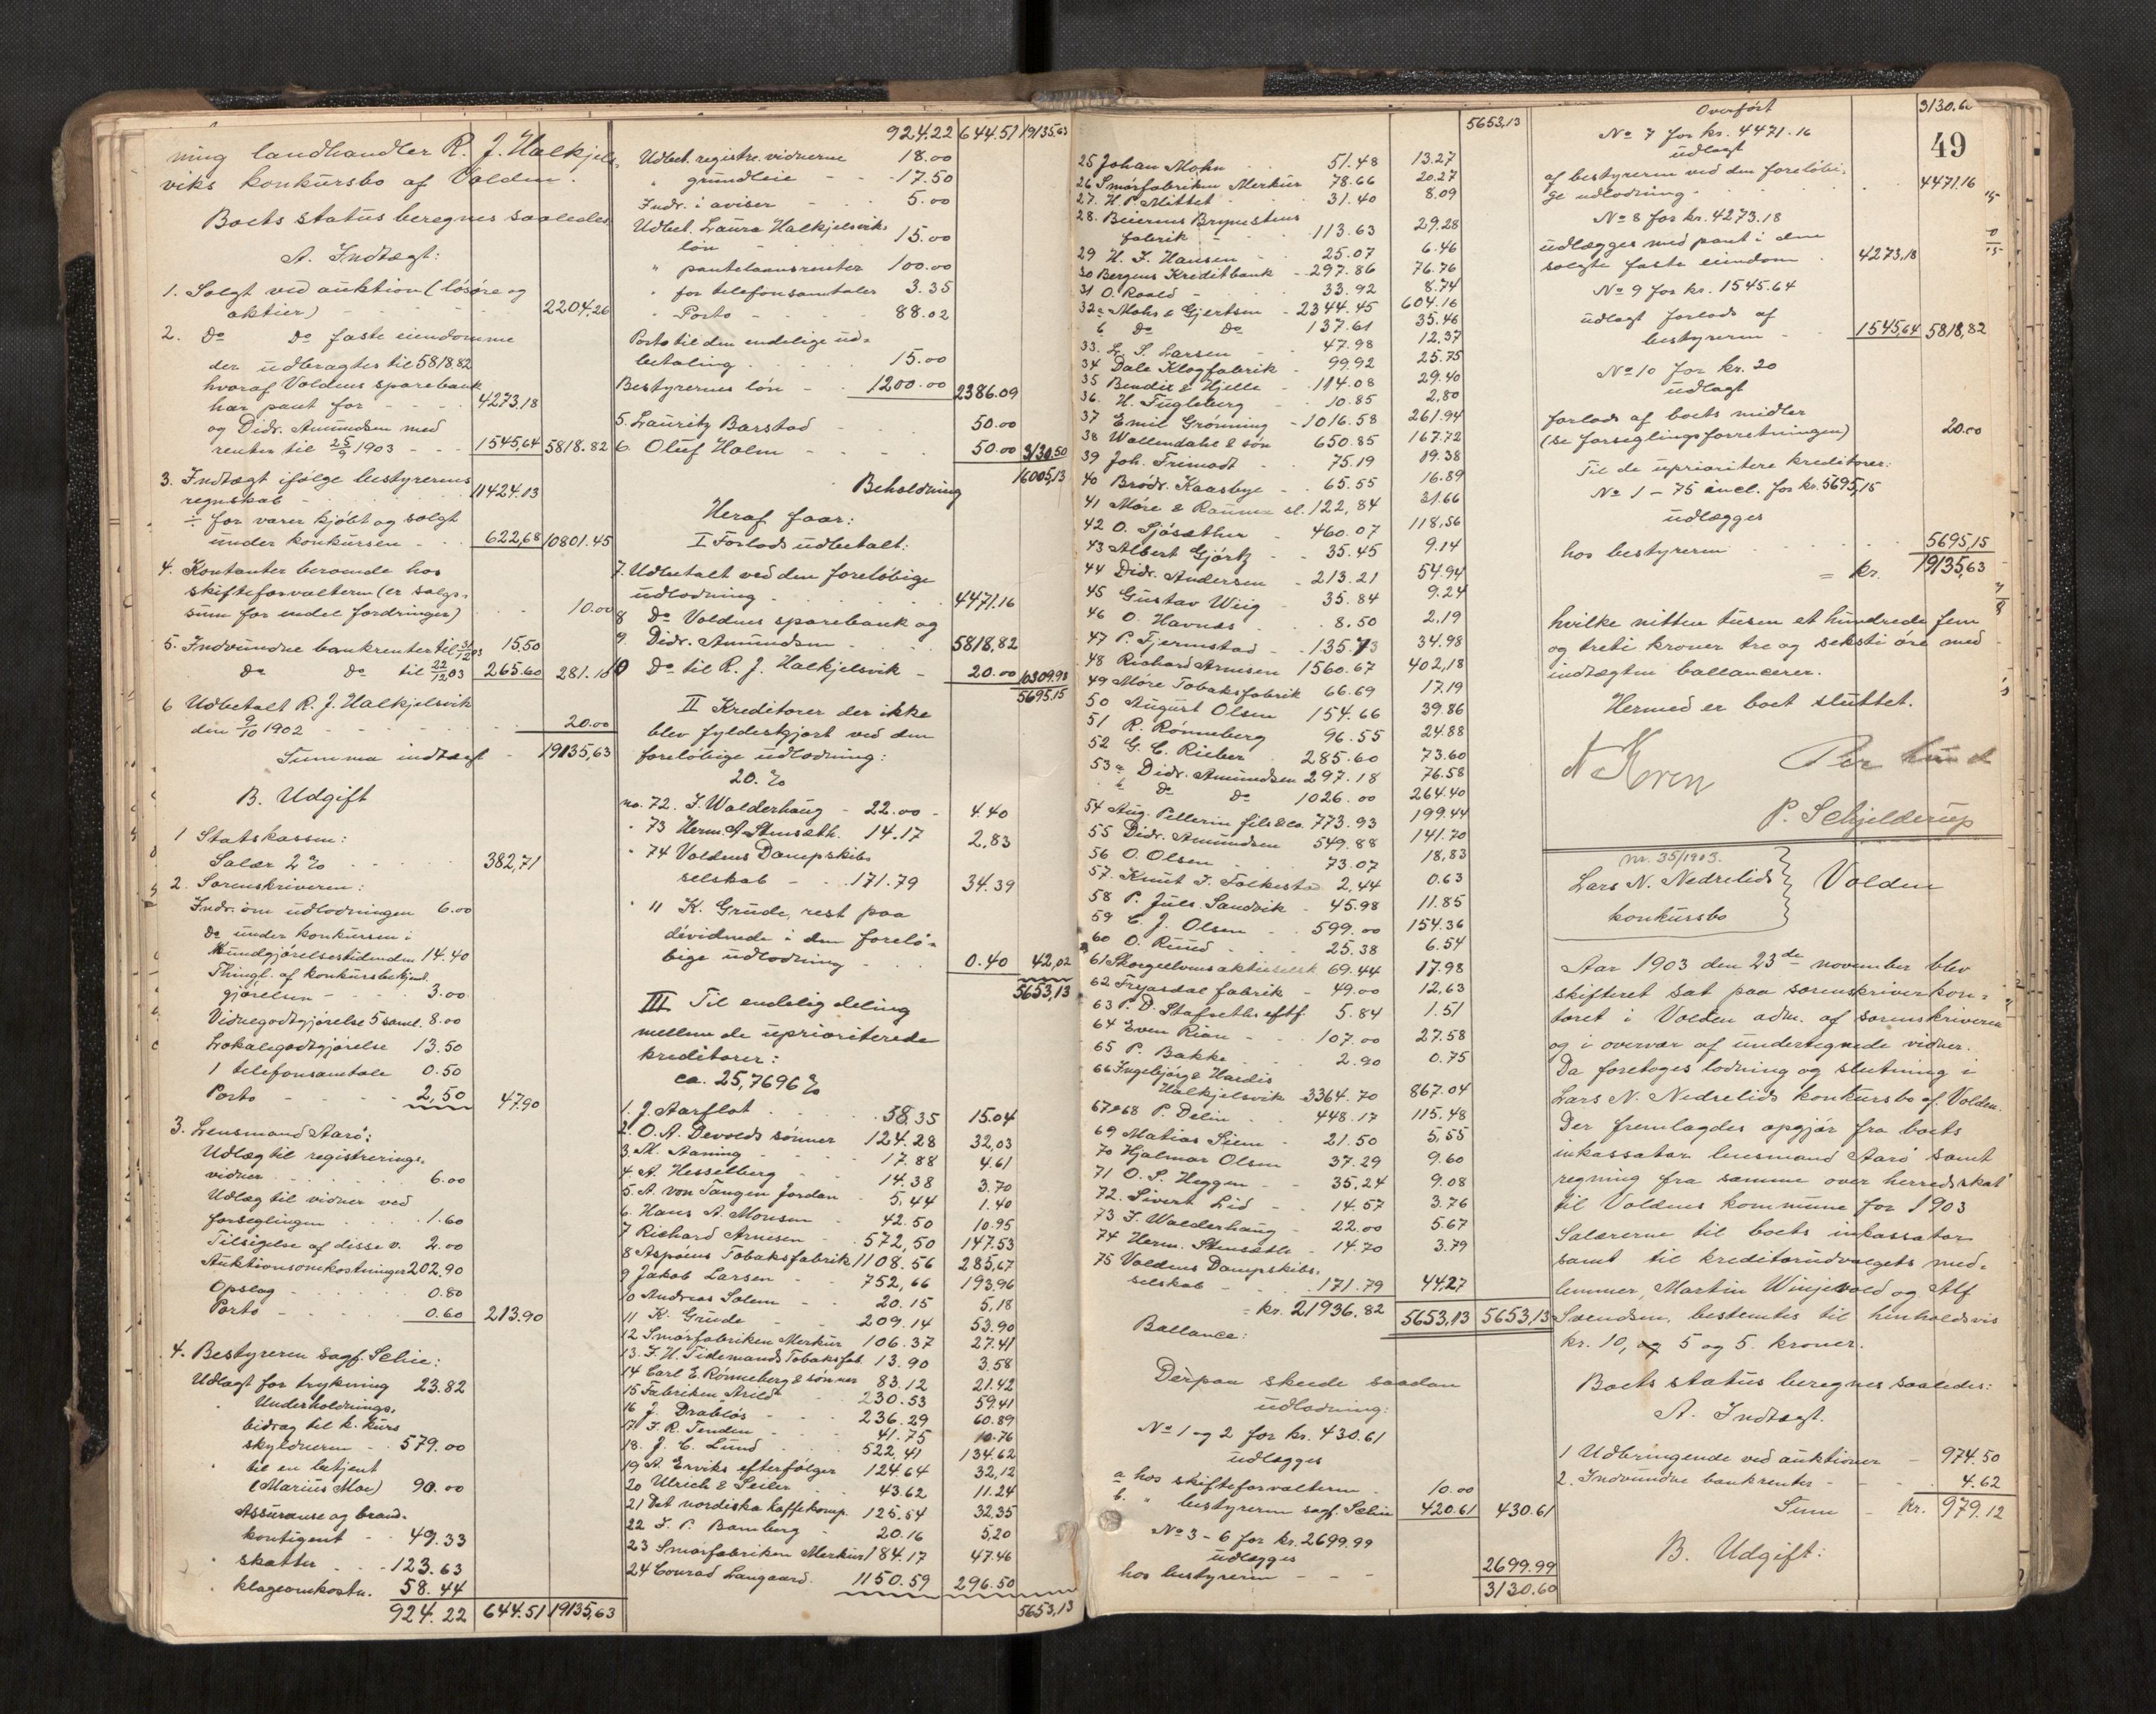 ning landhandler R. J. Halkjels-
viks konkursbo af Volden.
Boets status beregnes saaledes
A. Indtægt:
1. Solgt ved auktion (løsøre og
aktier) - - - 2204.26
2. Do Do faste eiendomme
der udbragtes til 5818.82
hvoraf Voldens sparebank
har pant for - - - 4273,18
og Didr. Amundsen med
renter til 25/9 1903 - - - 1545,64 5818.82
3. Indtægt ifølge bestyrerens
regnskab - - - 11424.13
÷ for varer kjøbt og solgt
under konkursen - - 622,68 10801.45
4. Kontanter beroende hos
skifteforvalteren (er salgs-
sum for endel fordringer) - - - 10.00
5. Indvundne bankrenter til 31/12 03 15,50
do do til 22/12 03 265.60 281.10
6 Udbetalt R. J. Halkjelsvik
den 9/10 1902 - - - 20.00
Summa indtægt - 19135,63
B. Udgift
1 Statskassen:
Salær 2 % - - - 382,71
2. Sorenskriveren:
Indr. om udlodningen 6.00
do under konkursen i
Kundgjørelsestidenden 14.40
Thingl. af konkursbekjendt-
gjørelsen - - - 3.00
Vidnegodtgjørelse 5 saml. 8.00
Lokalegodtgjørelse 13.50
1 telefonsamtale 0.50
Porto - - - 2,50 47.90
3. Lensmand Aarø:
Udlæg til registrerings-
vidner - - - 6.00
Udlæg til vidner ved
forseglingen - - - 1.60
Tilsigelse af disse v. 2.00
Auktionsomkostninger 202.90
Opslag - - - 0.80
Porto - - - 0.60 213.90
4. Bestyreren sagf. Schie:
Udlagt for trykning 23.82
" Underholdnings-
bidrag til k. kurs
skyldneren - 579.00
" til en betjent
(Marius Moe) 90.00
Assurance og brand-
kontigent - - 49.33
" skatter - - 123.63
" klageomkostn. 58.44
924.22 644.51 19135,63
924.22 644.51 19135,63
Udbet. registr. vidnerne 18.00
" grundleie - - 17.50
Indr. i aviser - - 5.00
Udbet. Laura Halkjelsviks
løn - - - 15.00
" pantelaansrenter 100.00
" for telefonsamtaler 3.35
" Porto - - - 88.02
Porto til den endelige ud-
betaling - - - 15.00
Bestyrerens løn - - 1200.00 2386.09
5. Lauritz Barstad - - - 50.00
6. Oluf Holm - - - 50.00 3130.50
Beholdning 16005,13
Heraf faar:
I Forlods udbetalt:
7. Udbetalt ved den foreløbige
udlodning - - - 4471.16
8 Do Voldens sparebank og
9. Didr. Amundsen - - - 5818,82
10 Do til R. J. Halkjelsvik - 20.00 10309.98
5695.15
II Kreditorer der ikke
blev fyldestgjort ved den
foreløbige udlodning:
20. %
no. 72. I. Walderhaug - 22.00 - 4.40
" 73 Herm. A. Stenseth. 14.17 2,83
" 74 Voldens Dampskibs
selskab - - 171.79 34.39
" 11 K. Grude, rest paa
dividende i den forelø-
bige udlodning - - - 0.40 42,02
5653,13
III Til endelig deling
mellem de uprioriterede
kreditorer:
ca. 25,7696 %
1. J. Aarflot - - - 58,35 15.04
2. O. A. Devolds sønner 124.28 32,03
3. M. Aaning - - - 17.88 4.61
4. A. Hesselberg - - 14.38 3.70
5. A. von Tangen Jordan - 5,44 1.40
6. Hans A. Monsen - 42.50 10.95
7 Richard Arnesen - 572,50 147.53
8 Aspøens Tobaksfabrik 1108.56 285,67
9 Jakob Larsen - - 752,66 193.96
10 Andreas Solem - - 20.15 5,18
11 K. Grude - - 209.14 53.90
12 Smørfabriken Merkur 106.37 27.41
13. J. H. Tidemands Tobaksfab. 13.90 3.58
14 Carl E. Rønneberg & sønner 83.12 21.42
15 Fabriken Arild - - 230.53 59.41
16 J. Drabløs - - 236.29 60.89
17 I. R. Tenden - - 41.75 10.76
18. J. C. Lund - - 522.41 134.62
19 A. Erviks efterfølger 124.64 32,12
20 Ulrich & Seiler - 43.62 11.24
21 Det nordiska kaffekomp. 125.54 32.35
22 I. P. Bamberg - 20.16 5,20
23 Smørfabriken Merkur 184.17 47.46
24 Conrad Langaard. 1150.59 296.50
5653,13
5653,13
25 Johan Mohn - - 51.48 13.27
26 Smørfabriken Merkur 78.66 20.27
27. H. P. Mittet - - 31.40 8.09
28. Beiernes Brynestens
fabrik - - - 113.63 29.28
29 H. I. Hansen - - 25.07 6.46
30 Bergens Kreditbank - 297.86 76.76
31 O. Roald - - 33.92 8.74
32 a Mohr & Gjertsen - 2344.45 604.16
b do do 137.61 35.46
33. L. S. Larsen - - 47.98 12.37
34 Dale Klogfabrik - 99.92 25.75
35 Bendix & Hjelle - 114.08 29.40
36. H. Fugleberg - - 10.85 2,80
37 Emil Grønning - 1016.58 261.94
38 Wallendahl & søn 650.85 167.72
39 Joh. Trimodt - - 75.19 19.38
40 Brødr. Kaasbye - - 65.55 16.89
41 Møre & Raums sl. 122,84 31.66
42 O. Sjøsæther - 460.07 118,56
43 Albert Gjørtz - - 35.45 9.14
44 Didr. Andersen - 213.21 54.94
45 Gustav Wiig - 35.84 9.24
46 O. Havnes - - 8.50 2,19
47 P. Tjernstad - - 135.73 34.98
48 Richard Arnesen 1560.67 402,18
49 Møre Tobaksfabrik 66.69 17.19
50 August Olsen 154.66 39.86
51 R. Rønneberg 96.55 24.88
52 G. C. Rieber - 285.60 73.60
53 a Didr. Amundsen 297.18 76.58
b do do 1026.00 264.40
54 Aug. Pellerin fils & co. 773.93 199.44
55 Didr. Amundsen 549.88 141.70
56 O. Olsen - - 73.07 18,83
57. Knut I. Folkestad 2,44 0.63
58 P. Juls. Sandvik - 45.98 11.85
59 C. J. Olsen - - 599.00 154.36
60 O. Ruud - - - 25.38 6.54
61 Skorgeelvens aktieselsk 69.44 17.98
62 Frysdal fabrik - 49.00 12,63
63 P. D. Stafseths eftf. 5.84 1.51
64 Even Rian - - 107.00 27.58
65 P. Bakke - - 2.90 0.75
66 Ingebjørg & Hardis
Halkjelsvik 3364.70 867.04
67 & 68 P. Delin - - 448.17 115.48
69 Matias Siem - - 21.50 5,55
70 Hjalmar Olsen 37.29 9.60
71 O. S. Heggen - - 35,24 9.08
72. Sivert Lid - - 14.57 3.76
73 I. Walderhaug - 22.00 5.67
74 Herm. Stenseth - 14.70 3.79
75 Voldens Dampskibs-
selskab - - - 171.79 44.27
= kr. 21936.82 5653,13 5653,13
Ballance:
Derpaa skede saadan
udlodning:
No 1 og 2 for kr. 430.61
udlægges
a hos skifteforvalteren - 10.00
b. " bestyreren sagf. Schie 420.61 430.61
No 3 - 6 for kr. 2699.99
udlægges
hos bestyreren - - - 2699.99
3130.60
Overført 3130.60
49
No 7 for kr. 4471.16
udlagt
af bestyreren ved den foreløbi-
ge udlodning - - - 4471.16
No 8 for kr. 4273.18
udlægges med pant i den
solgte faste eiendom - 4273,18
No 9 for kr. 1545.64
udlagt forlods af
bestyreren - - - 1545,64 5818,82
No 10 for kr. 20
udlagt
forlods af boets midler
(se forseglingsforretningen) 20.00
Til de uprioritere kreditorer:
No 1 - 75 incl. for kr. 5695,15
udlægges
hos bestyreren - - - 5695,15
= kr. 19135,63
hvilke nitten tusen et hundrede fem
og treti kroner tre og seksti øre med
indtægten ballancerer.
Hermed er boet sluttet.
P. Schjelderup
nr. 35/1903.
Lars N. Nedrelids
konkursbo
Volden
Aar 1903 den 23de november blev
skifteret sat paa sorenskriverkon-
toret i Volden adm. af sorenskriveren
og i overvær af undertegnede vidner.
Da foretoges lodning og slutning i
Lars N. Nedrelids konkursbo af Volden.
Der fremlagdes opgjør fra boets
inkassator lensmand Aarø samt
regning fra samme over herredsskat
til Voldens kommune for 1903
Salærerne til boets inkassator
samt til kreditorudvalgets med-
lemmer, Martin Winjevold og Alf
Svendsen, bestemtes til henholdsvis
kr. 10, og 5 og 5. kroner.
Boets status beregnes saaledes:
A. Indtægt.
1 Udbringende ved auktioner - 974.50
2. Indvundne bankrenter - - - 4.62
Sum - kr. 979.12
B. Udgift: